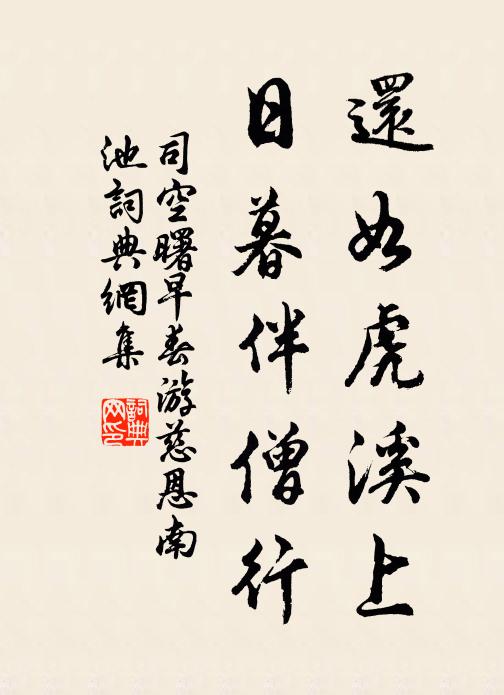 還如虎溪上
日暮伴僧行
司空曙早春游慈恩南
池詞典網集
詞典網印